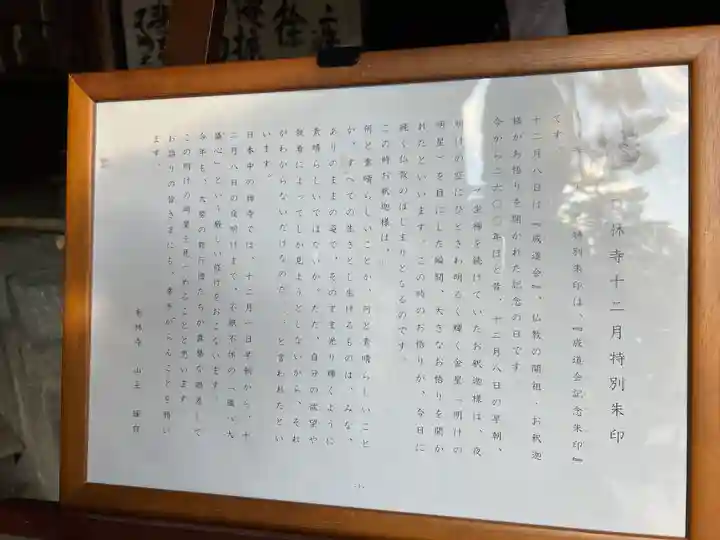 休寺十二月特別朱印
特別朱印は、『成道会記念朱印』
です。
十二月八日は『成道会』、仏教の開祖・お釈迦
様がお悟りを開かれた記念の日です。
今から二六〇〇年ほど昔、十二月八日の早朝、
坐禅を続けていたお釈迦様は、夜
明けの空にひときわ明るく輝く金星(明けの
明星)を目にした瞬間、大きなお悟りを開か
れたといいます。この時のお悟りが、今日に
続く仏教のはじまりとなるのです。
この時お釈迦様は、
何と素晴らしいことか、何と素晴らしいこと
か、すべての生きとし生けるものは、みな、
ありのままの姿で、そのまま光り輝くように
素晴らしいではないか。ただ、自分の欲望や
執着によってしか見ようとしないから、それ
がわからないだけなのだ…、と言われたとい
います。
日本中の禅寺では、十二月一日早朝から、十
二月八日の夜明けまで、不眠不休の「臘八大
摂心」という厳しい修行をおこないます。
今年も、大勢の修行僧たちが真摯な眼差しで
この明けの明星を見つめることと思います
お詣りの皆さまにも、幸多からんことを願い
ます。